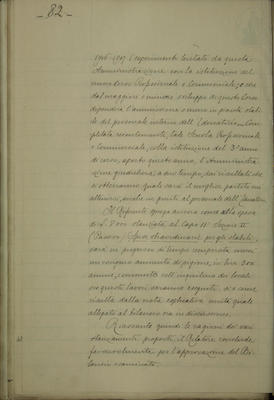 - 82 -
1906-1907 l'esperimento tentato da questa
Amministrazione con la istituzione del
nuovo Corso Professionale e Commerciale, e che
dal maggiore o minore sviluppo di questo Corso
dipenderà l'ammissione o meno in pianta stabi-
le del personale interino dell'Educatorio. Com-
pletata recentemente, tale Scuola Professionale
e Commerciale, colla istituzione del 3° anno
di corso, aperto quest'anno, l'Amministra-
zione giudicherà, a suo tempo, dai risultati che
si otterranno quale sarà il miglior partito in
attinenza, anche in quanto al personale dell'
Il Referente spiega ancora come alla spesa
di L. stanziata al Capo II° Titolo II
(Passivo) Spese straordinarie per gli stabili,
sarà in progresso di tempo compensata con
un congruo aumento di pigione, in lire 300
annue, convenuto coll'inquilino dei locali
ove questi lavori saranno eseguiti, e come
risulta dalla nota esplicativa unita quale
allegato al bilancio ora in discussione.
Riassunte quindi le ragioni dei vari
stanziamenti proposti, il Relatore conclude
favorevolmente per l'approvazione del Bi-
lancio esaminato.